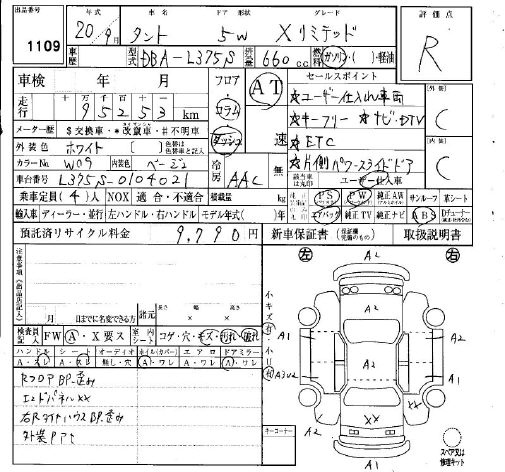 出品番号 1109
年式 20/9月
車名 タント
ドア 形状 5W
グレード Xリミテッド
評価点 R
車歴
型式 DBA-L375S
排気量 660cc
燃料 ガソリン・( )・軽油
車検 年 月
フロア・コラム・ダッシュ
AT 速
セールスポイント
走行 十万 万 千 百 十 95253 km
★ユーザー仕入れ車両
★キーフリー ★ナビ・DTV
★ETC
★片側パワースライドドア
外装 C
内装 C
メーター歴 $交換車・*改竄車・#不明車
外装色 ホワイト [ ]
カラーNo W09 内装色 ベージュ
冷房 AAC 無
該当車は丸印 ユーザー仕入車
車台番号 L375S-0104021
乗車定員 (4)人 NOX 適合・不適合 積載量 kg
純正 PS PW 純正AW サンルーフ 革シート
輸入車 ディーラー・並行 左ハンドル・右ハンドル モデル年式( )
エアバッグ 純正TV 純正ナビ ABS
預託済リサイクル料金 9,790円
新車保証書 取扱説明書
左 右
注意事項
月 日までに名変できる方
諸元 長さ 幅 高さ
検査員記入 FW A・X要ス
室内シート コゲ・穴・キズ・汚れ・破れ
ハンドル シート オーディオ エアロ ドアミラー
無し・穴 A・ワレ A・ワレ
RフロアBP歪み
エンドパネルXX
右RタイヤハウスBP歪み
外装PアA
キーコーナー
小キズ有
A2
A2
A1
A2
A2
A1
A3U2
XX
XX
A2
A2
A1
スペア又は修理キット